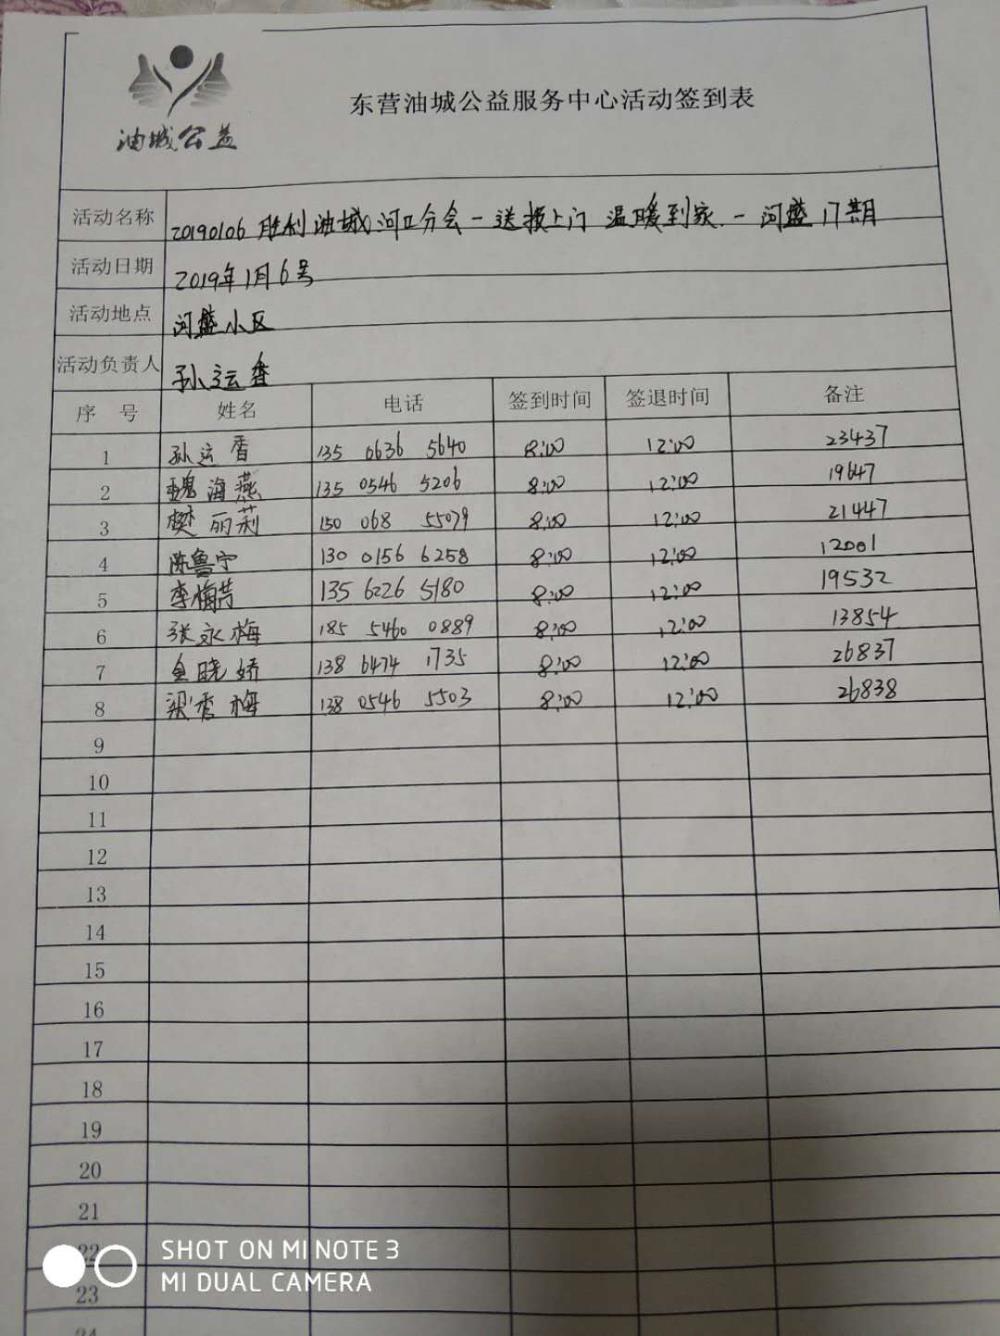 油城公益
东营油城公益服务中心活动签到表
活动名称 20190106 胜利油城河口分会-送报上门 温暖到家.-河盛17期
活动日期 2019年1月6号
活动地点 河盛小区
活动负责人 孙运香
序号 姓名 电话 签到时间 签退时间 备注
1 孙运香 135 0636 5640 8:00 12:00 23437
2 魏海燕 135 0546 5206 8:00 12:00 19647
3 樊丽莉 150 068 55079 8:00 12:00 21447
4 陈鲁宁 130 0156 6258 8:00 12:00 12001
5 李梅芳 135 6226 5180 8:00 12:00 19532
6 张永梅 185 5460 0889 8:00 12:00 13854
7 晓娇 138 6474 1735 8:00 12:00 26837
8 梁香梅 138 0546 5503 8:00 12:00 26838
9
10
11
12
13
14
15
16
17
18
19
20
21
22
23
24
SHOT ON MI NOTE 3
MI DUAL CAMERA